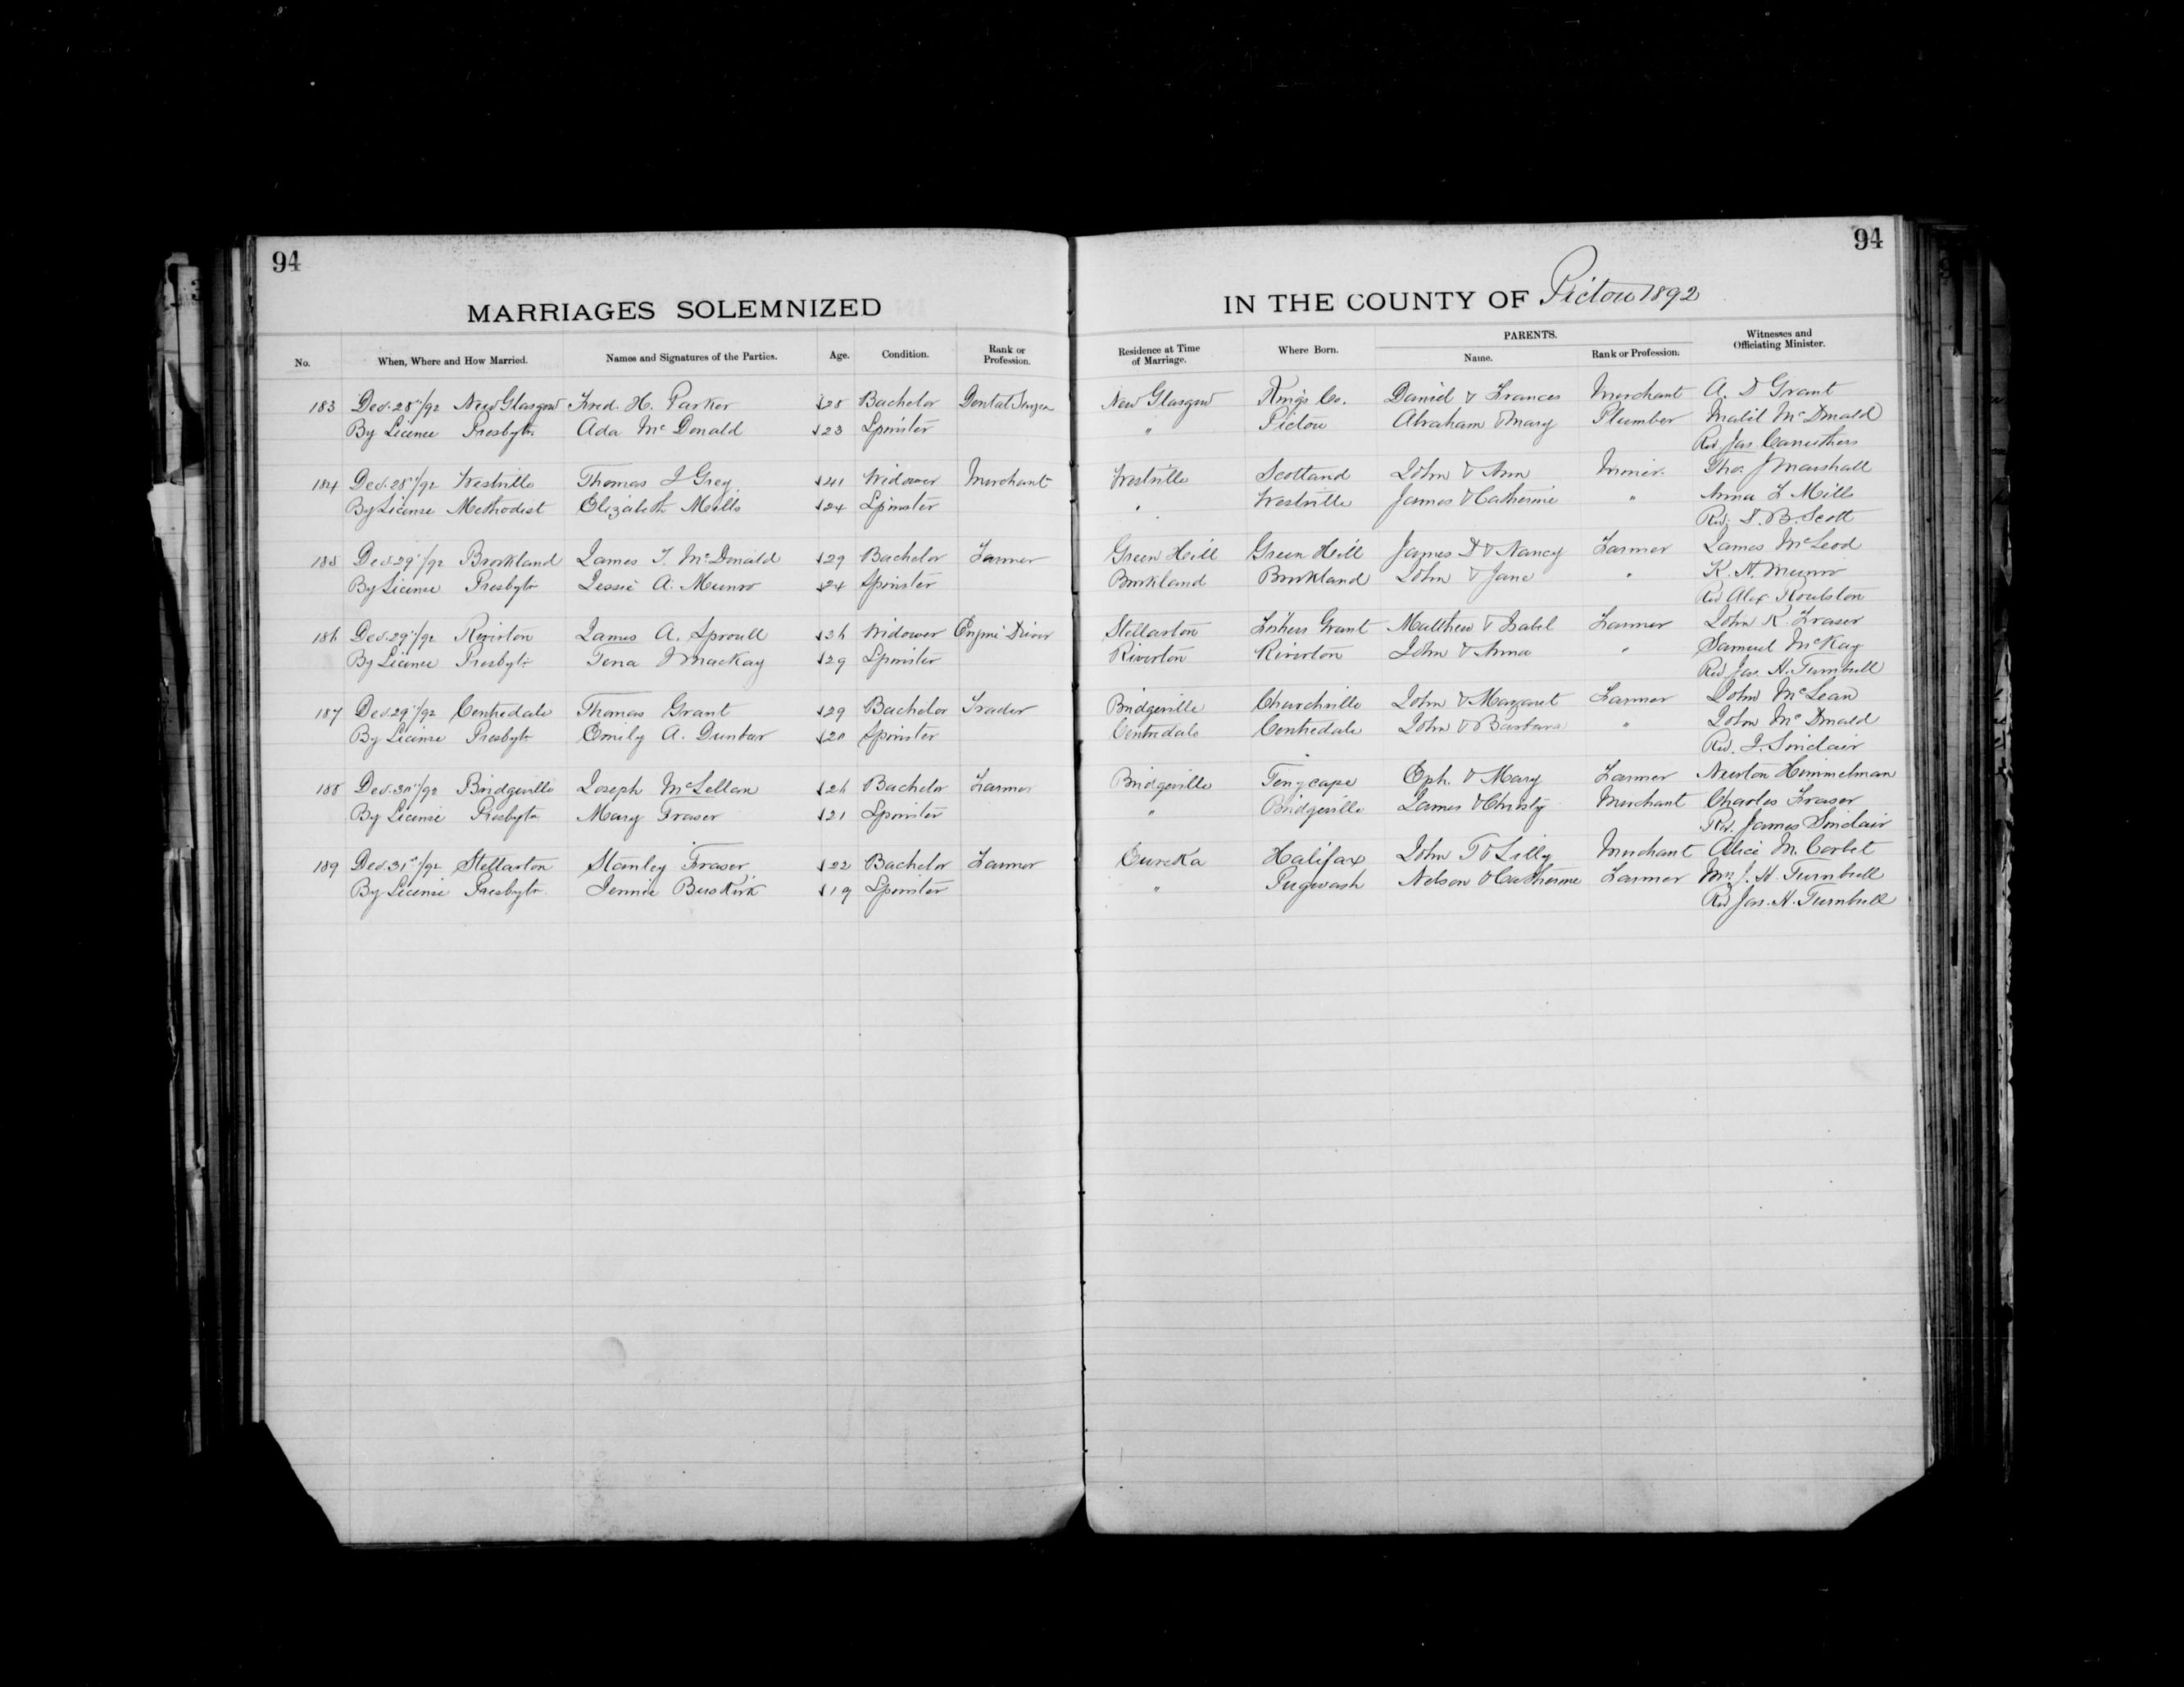 94
94
MARRIAGES SOLEMNIZED
IN THE COUNTY OF Pictou 1892
No. When, Where and How Married. Names and Signatures of the Parties. Age. Condition. Rank or Profession. Residence at Time of Marriage. Where Born. PARENTS. Name. Rank or Profession. Witnesses and Officiating Minister.
183 Dec. 28"/92 New Glasgow Fred. H. Parker 28 Bachelor Dental New Glasgow Kings Co. Daniel & Frances Merchant A. D Grant
By Licence Presbytn Ada McDonald 23 Spinster " Pictou Abraham & Mary Plumber McDonald
Rev. Jas Carruthers
184 Dec. 28"/92 Westville Thomas J Grey 41 Widower Merchant Westville Scotland John & Ann Miner Tho. J Marshall
By License Methodist Elizabeth Mills 24 Spinster " Westville James & Catherine " Anna L Mills
Rev. S. B. Scott
185 Dec 29"/92 Brookland James T. McDonald 29 Bachelor Farmer Green Hill Green Hill James D & Nancy Farmer James McLeod
By License Presbytn Jessie A. Munro 24 Spinster Brookland Brookland John & Jane " K. N. Munro
Rev Alex Roulston
186 Dec. 29"/92 Riverton James A. Sproull 36 Widower Engine Driver Stellarton Fishers Grant Matthew & Isabel Farmer John K. Fraser
By Licence Presbytn Tena J MacKay 29 Spinster Riverton Riverton John & Anna " Samuel McKay
Rev Jas. H. Turnbull
187 Dec. 29"/92 Centredale Thomas Grant 29 Bachelor Trader Bridgeville Churchville John & Margaret Farmer John McLean
By License Presbytn Emily A. Dunbar 20 Spinster Centredale Centredale John & Barbara " John McDonald
Rev. J. Sinclair
188 Dec. 30"/92 Bridgeville Joseph McLellan 26 Bachelor Farmer Bridgeville Tenycape Eph. & Mary Farmer Newton Himmelman
By License Presbytn Mary Fraser 21 Spinster " Bridgeville James & Christy Merchant Charles Fraser
Rev. James Sinclair
189 Dec. 31st/92 Stellarton Stanley Fraser 22 Bachelor Farmer Eureka Halifax John T & Lilly Merchant Alice M. Corbet
By License Presbytn Jennie Buskirk 19 Spinster " Pugwash Nelson & Catherine Farmer Mrs J. H. Turnbull
Rev Jas. H. Turnbull